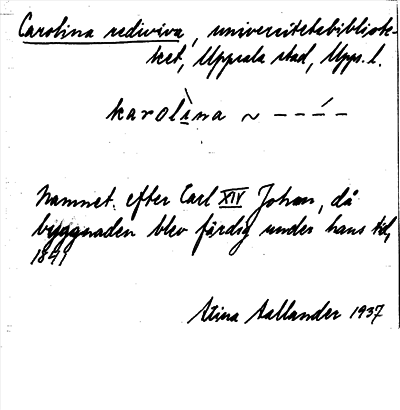 Carolina rediviva, universitetsbibliote-
ket, Uppsala stad, Upps. l.
karolìna ~ – – –́ –
Namnet efter Carl XIV Johan, då
byggnaden blev färdig under hans tid,
1841
Stina Sallander 1937